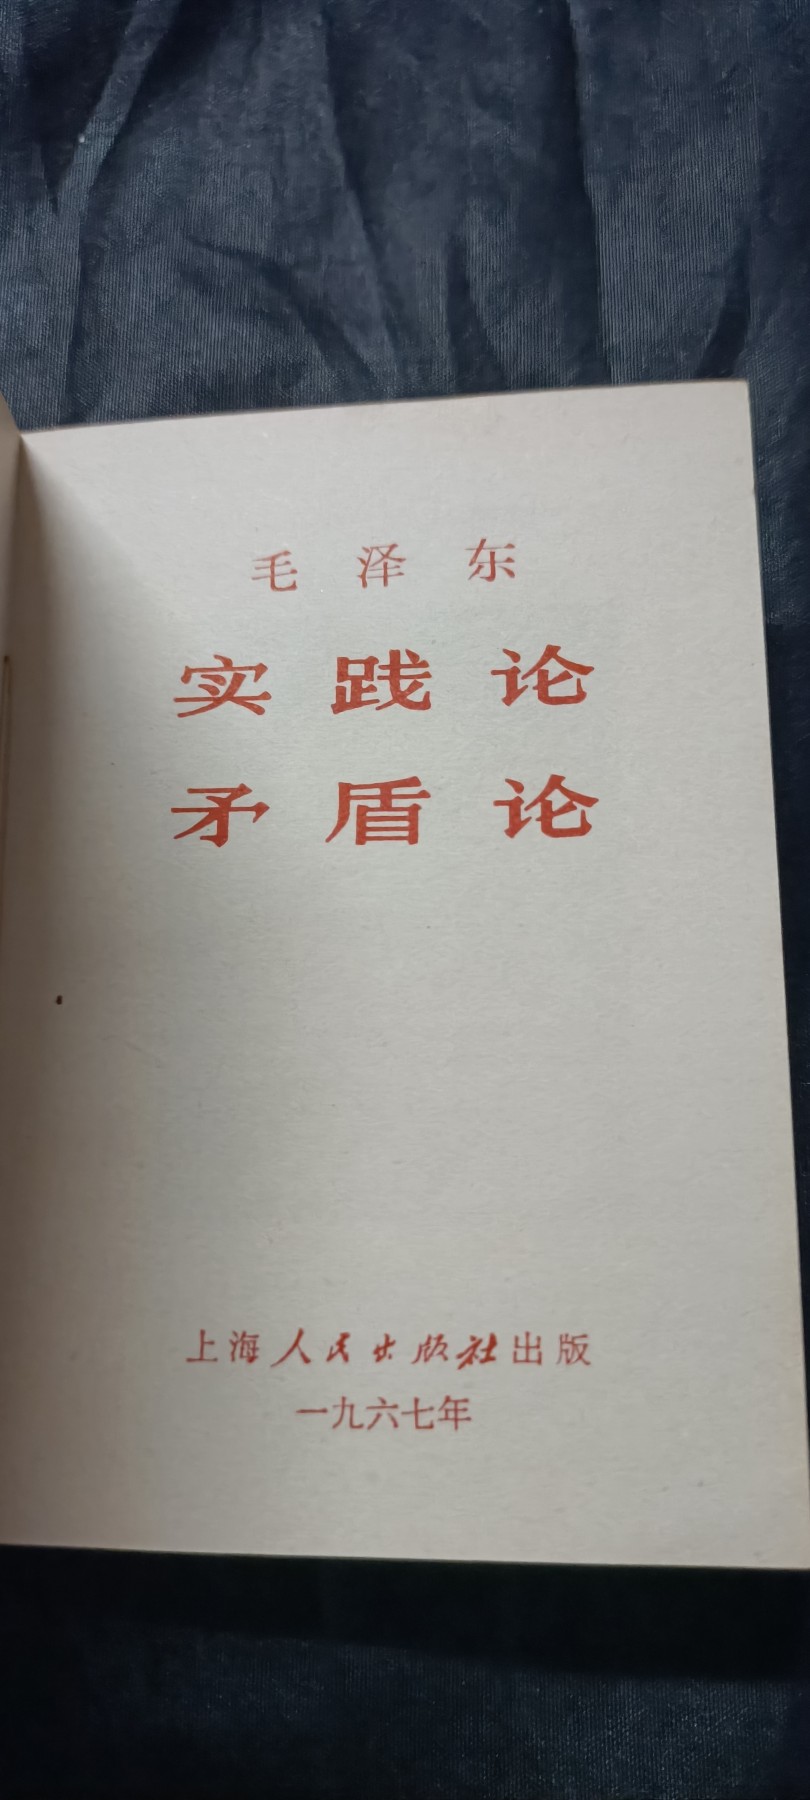 毛泽东
实践论
矛盾论
上海人民出版社出版
一九六七年